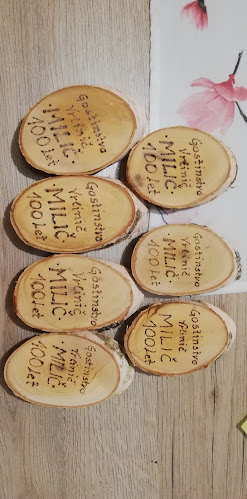 Gostinstvo
Vrtinič
MILIČ
100 let
Gostinstvo
Vrtinič
MILIČ
100 let
Gostinstvo
Vrtinič
MILIČ
100 let
Gostinstvo
Vrtinič
MILIČ
100 let
Gostinstvo
Vrtinič
MILIČ
100 let
Gostinstvo
Vrtinič
MILIČ
100 let
Gostinstvo
Vrtinič
MILIČ
100 let